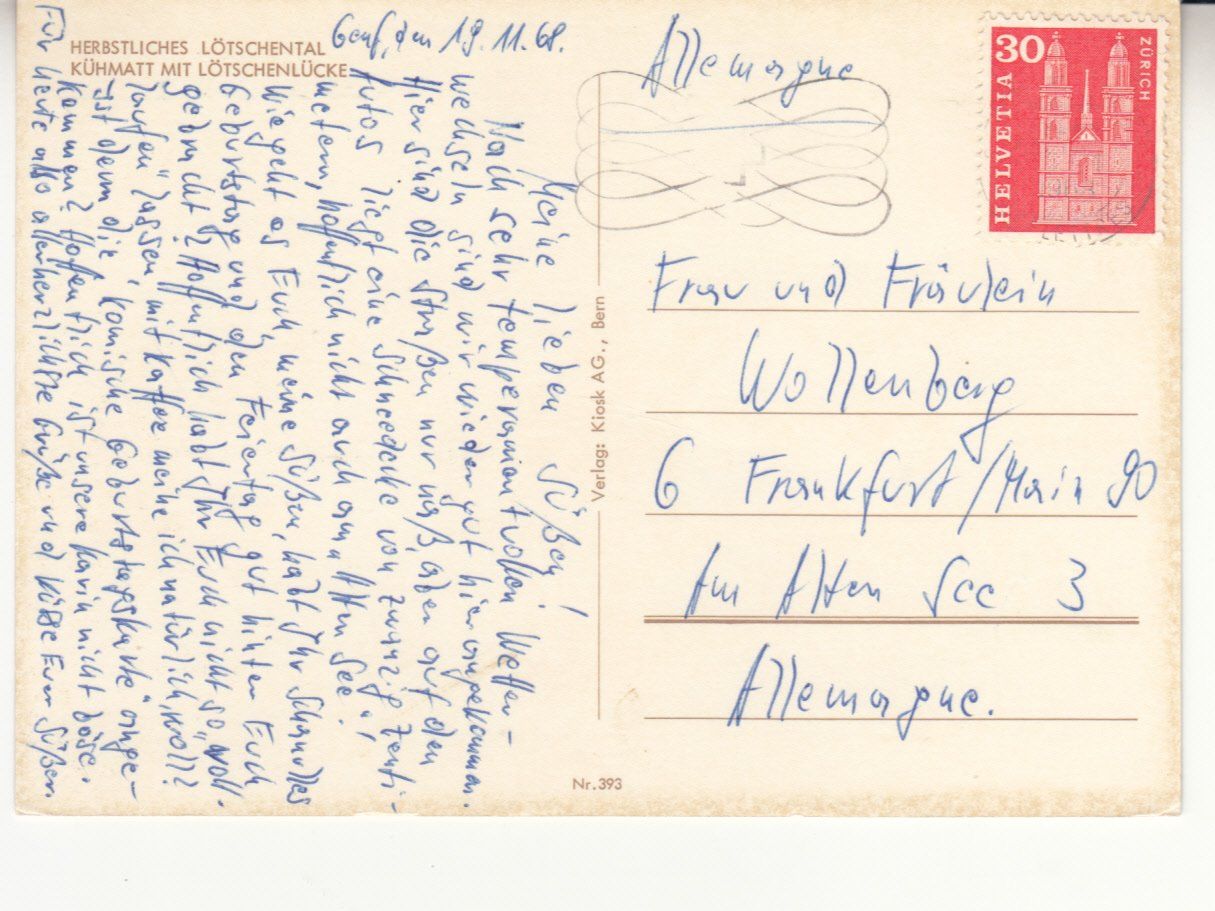 HERBSTLICHES LÖTSCHENTAL
KÜHMATT MIT LÖTSCHENLÜCKE
Genf, den 19.11.68.
Meine lieben Süßen!
Nach sehr temperamentvollen Wetter-
wechseln sind wir wieder gut hier angekommen.
Hier sind die Straßen nur naß, aber auf den
Autos liegt eine Schneedecke von zwanzig Zenti-
metern, hoffentlich nicht auch am Alten See!
Wie geht es Euch, meine Süßen, habt Ihr Schnulles
Geburtstag und den Feiertag gut hinter Euch
gebracht? Hoffentlich habt Ihr Euch nicht so "voll-
laufen" lassen, mit Kaffee meine ich natürlich, woll?
Ist denn die "komische Geburtstagskarte" ange-
kommen? Hoffentlich ist unsere Karin nicht böse.
Für heute also allerherzlichste Grüße und Küsse Euer Süßen
Verlag: Kiosk AG., Bern
Nr. 393
Allemagne
30
HELVETIA
ZÜRICH
Frau und Fräulein
Wollenberg
6 Frankfurt/Main 90
Am Alten See 3
Allemagne.